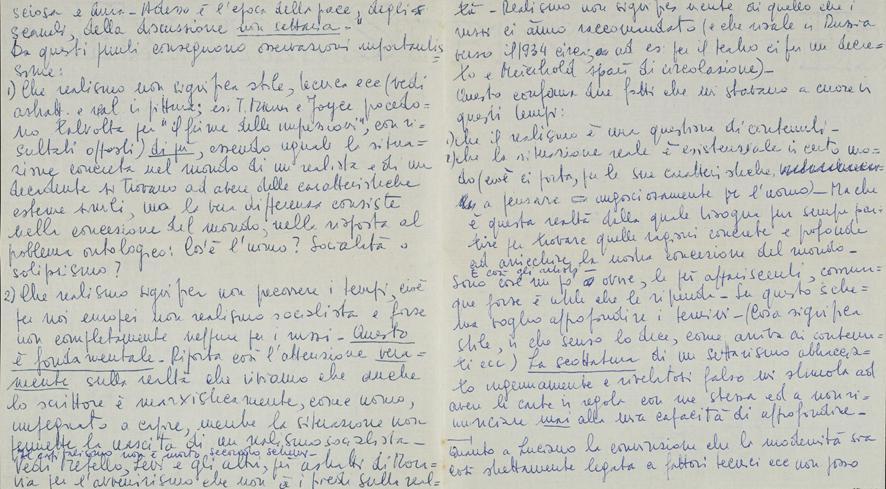 sciosa e dura - Adesso è l'epoca della pace, degli s=
scambi, della discussione non settaria -"
Da questi punti conseguono osservazioni importantis=
sime:
1) Che realismo non significa stile, tecnica ecc (vedi
astratt. e real. in pittura; es: T. Mann e Joyce procedo=
no talvolta per "il fiume delle impressioni", con ri=
sultati opposti) di più, essendo uguale la situa=
zione concreta nel mondo di un realista e di un
decadente si trovano ad avere delle caratteristiche
esterne simili, ma la vera differenza consiste
nella concezione del mondo, nella risposta al
problema ontologico: Cos'è l'uomo? Socialità o
solipsismo?
2) Che realismo significa non precorrere i tempi, cioè
per noi europei non realismo socialista e forse
non completamente neppure per i russi - Questo
è fondamentale - Riporta così l'attenzione vera=
mente sulla realtà che viviamo che anche
lo scrittore è marxisticamente, come uomo,
impegnato a capire, mentre la situazione non
permette la nascita di un realismo socialista -
non è morto secondo schemi -
Vedi Metello, Levi e gli altri, gli astratti di
per l'avvenirismo che non è i piedi sulla real=
tà - Realismo non significa niente di quello che i
russi ci hanno raccomandato (e che risale in Russia
verso il 1934 circa, ad es: per il teatro ci fu un decre=
to e Meierhold sparì di circolazione) -
Questo conferma due fatti che mi stavano a cuore in
questi tempi:
1) che il realismo è una questione di contenuti -
2) che la situazione reale è esistenziale in certo mo=
do (cioè ci porta, per le sue caratteristiche,
a pensare angosciosamente per l'uomo) - Ma che
è questa realtà dalla quale bisogna pur sempre par=
tire per trovare quelle ragioni concrete e profonde
ad arricchire la nostra concezione del mondo -
E così gli articoli
Sono cose un po' ovvie, le più appariscenti, comun=
que forse è utile che le riprenda - Su questo sche=
ma voglio approfondire i termini - (Cosa significa
stile, in che senso lo dice, come arriva ai contenu=
ti ecc) La scottatura di un settarismo abbraccia=
to ingenuamente e rivelatosi falso mi stimola ad
avere le carte in regola con me stessa ed a non ri=
nunciare mai alla mia capacità di approfondire -
Quanto a Luciano la convinzione che la modernità sia
così strettamente legata a fattori tecnici ecc non posso